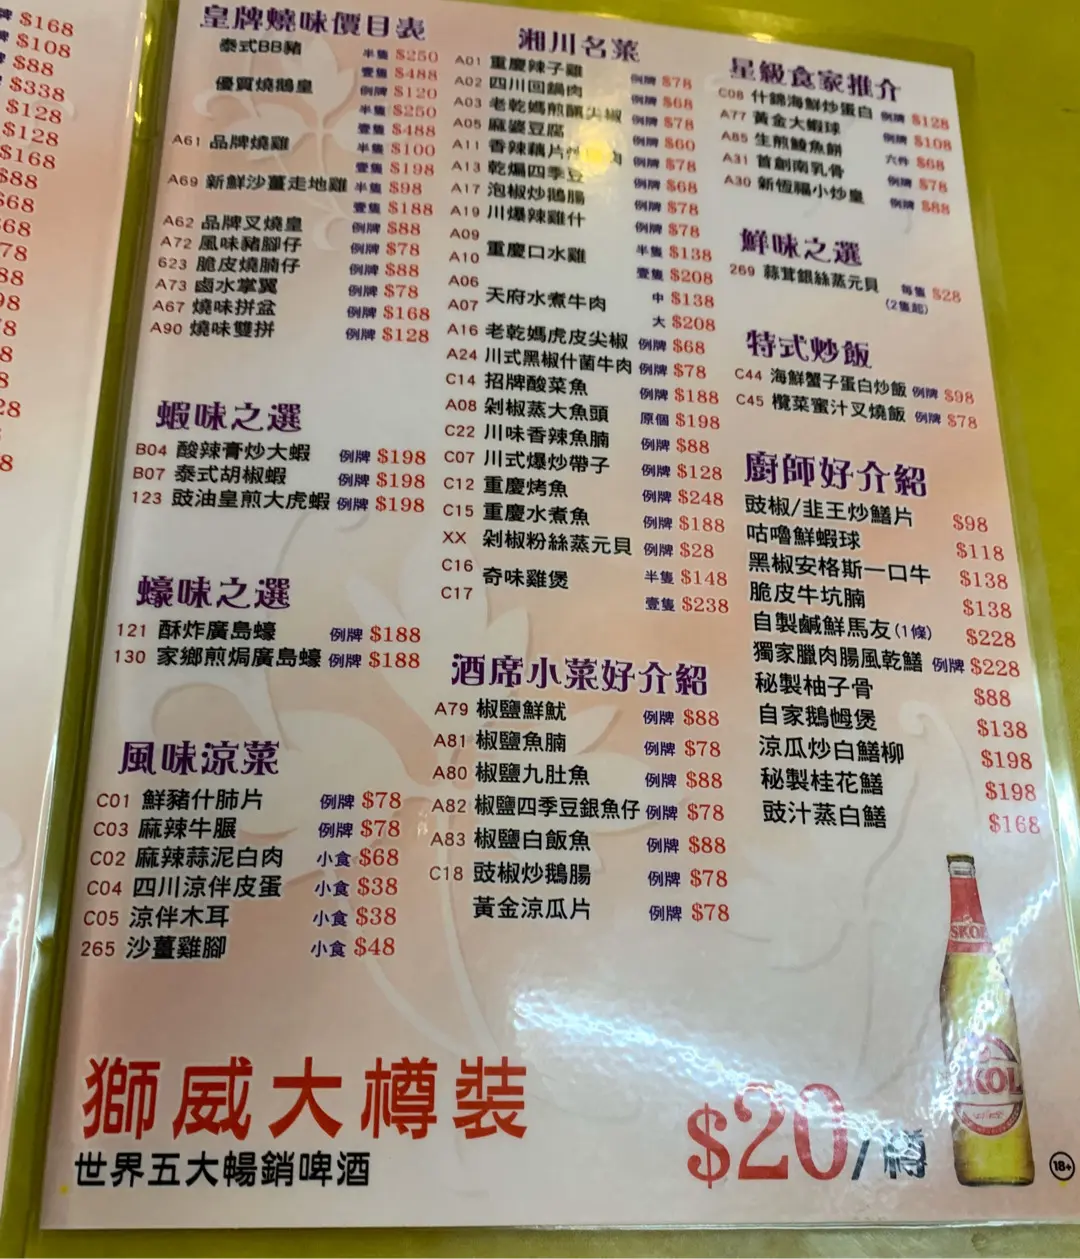 $168
$108
$88
$338
$128
$128
$168
$88
皇牌燒味價目表
泰式BB豬 半隻 $250
壹隻 $488
優質燒鵝皇 例牌 $120
半隻 $250
壹隻 $488
A61 品牌燒雞 半隻 $100
壹隻 $198
A69 新鮮沙薑走地雞 半隻 $98
壹隻 $188
A62 品牌叉燒皇 例牌 $88
A72 風味豬腳仔 例牌 $78
623 脆皮燒腩仔 例牌 $88
A73 鹵水掌翼 例牌 $78
A67 燒味拼盆 例牌 $168
A90 燒味雙拼 例牌 $128
蝦味之選
B04 酸辣膏炒大蝦 例牌 $198
B07 泰式胡椒蝦 例牌 $198
123 豉油皇煎大虎蝦 例牌 $198
蠔味之選
121 酥炸廣島蠔 例牌 $188
130 家鄉煎焗廣島蠔 例牌 $188
風味涼菜
C01 鮮豬什肺片 例牌 $78
C03 麻辣牛𦟌 例牌 $78
C02 麻辣蒜泥白肉 小食 $68
C04 四川涼伴皮蛋 小食 $38
C05 涼伴木耳 小食 $38
265 沙薑雞腳 小食 $48
湘川名菜
A01 重慶辣子雞 例牌 $78
A02 四川回鍋肉 例牌 $68
A03 老乾媽煎釀尖椒 例牌 $78
A05 麻婆豆腐 例牌 $60
A11 香辣藕片 肉 例牌 $78
A13 乾煸四季豆 例牌 $68
A17 泡椒炒鵝腸 例牌 $78
A19 川爆辣雞什 例牌 $78
A09 重慶口水雞 半隻 $138
A10 壹隻 $208
A06 天府水煮牛肉 中 $138
A07 大 $208
A16 老乾媽虎皮尖椒 例牌 $68
A24 川式黑椒什菌牛肉 例牌 $78
C14 招牌酸菜魚 例牌 $188
A08 剁椒蒸大魚頭 原個 $198
C22 川味香辣魚腩 例牌 $88
C07 川式爆炒帶子 例牌 $128
C12 重慶烤魚 例牌 $248
C15 重慶水煮魚 例牌 $188
XX 剁椒粉絲蒸元貝 例牌 $28
C16 奇味雞煲 半隻 $148
C17 壹隻 $238
酒席小菜好介紹
A79 椒鹽鮮魷 例牌 $88
A81 椒鹽魚腩 例牌 $78
A80 椒鹽九肚魚 例牌 $88
A82 椒鹽四季豆銀魚仔 例牌 $78
A83 椒鹽白飯魚 例牌 $88
C18 豉椒炒鵝腸 例牌 $78
黃金涼瓜片 例牌 $78
星級食家推介
C08 什錦海鮮炒蛋白 例牌 $128
A77 黃金大蝦球 例牌 $108
A85 生煎鯪魚餅 六件 $68
A31 首創南乳骨 例牌 $78
A30 新恆福小炒皇 例牌 $88
鮮味之選
269 蒜茸銀絲蒸元貝 每隻 $28
(2隻起)
特式炒飯
C44 海鮮蟹子蛋白炒飯 例牌 $98
C45 欖菜蜜汁叉燒飯 例牌 $78
廚師好介紹
豉椒/韭王炒鱔片 $98
咕嚕鮮蝦球 $118
黑椒安格斯一口牛 $138
脆皮牛坑腩 $138
自製鹹鮮馬友(1條) $228
獨家臘肉腸風乾鱔 例牌 $228
秘製柚子骨 $88
自家鵝乸煲 $138
涼瓜炒白鱔柳 $198
秘製桂花鱔 $198
豉汁蒸白鱔 $168
獅威大樽裝
世界五大暢銷啤酒
$20/樽
SKOL
SKOL
18+